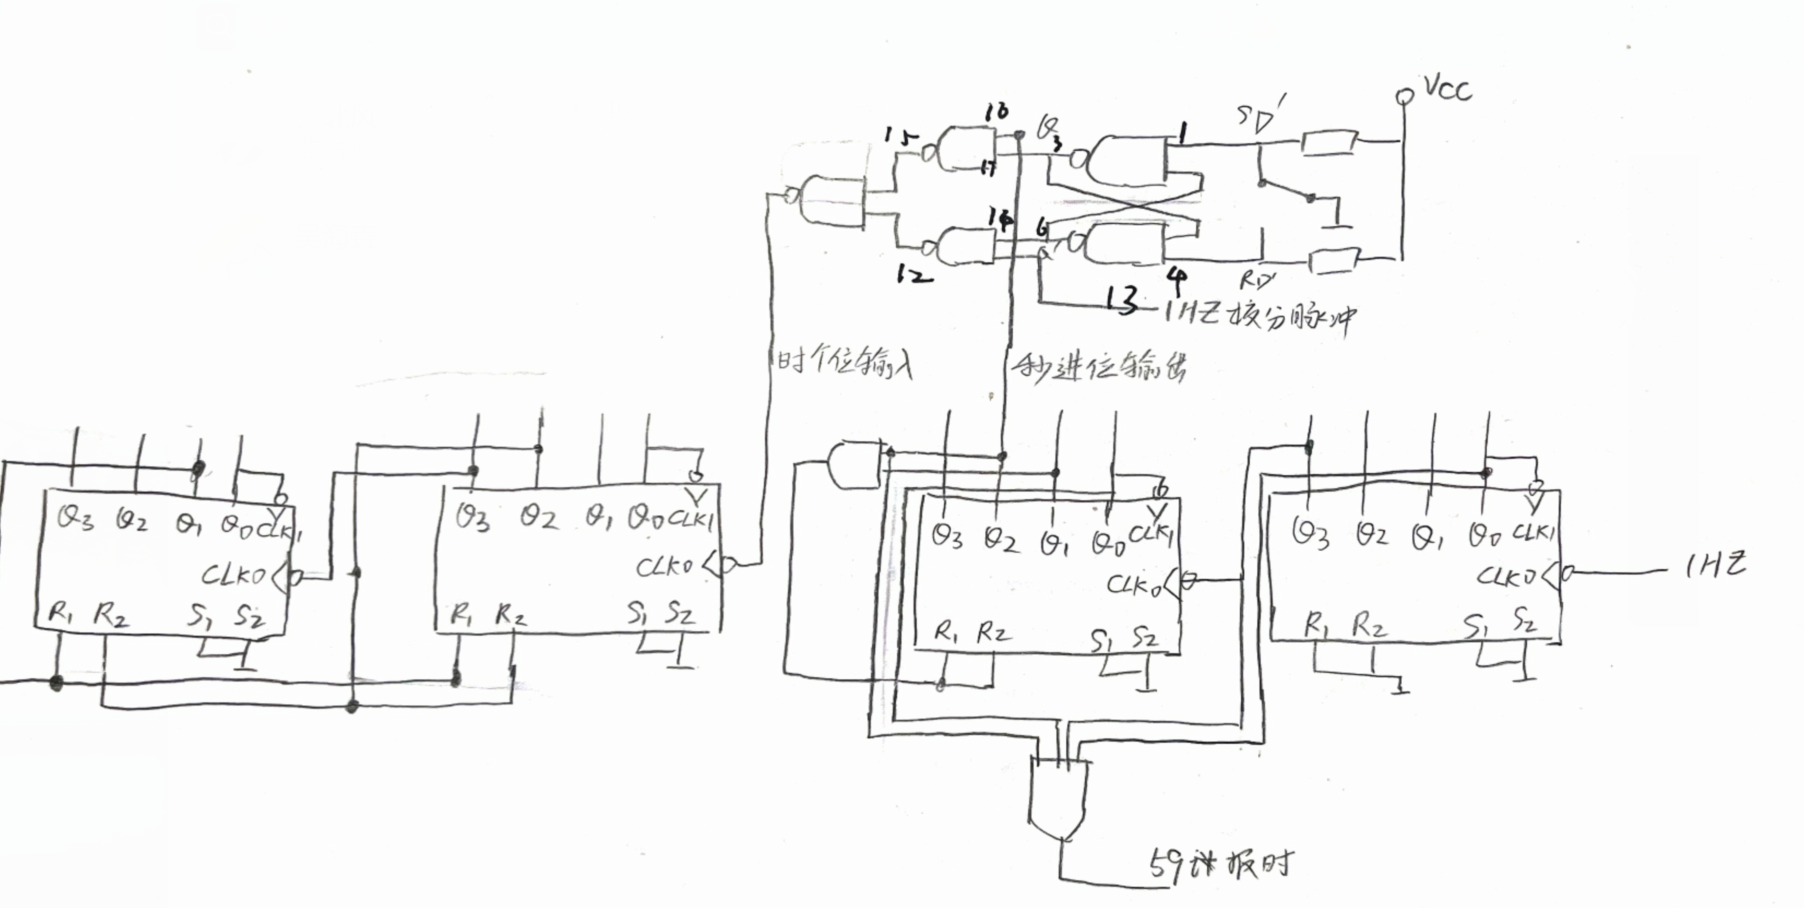 VCC
SD'
10
15
Q
3
1
17
14
6
Q'
12
4
RD'
13
1HZ校分脉冲
时个位输入
秒进位输出
Q3 Q2 Q1 Q0 CLK1
CLK0
R1 R2 S1 S2
Q3 Q2 Q1 Q0 CLK1
CLK0
R1 R2 S1 S2
Q3 Q2 Q1 Q0 CLK1
CLK0
R1 R2 S1 S2
Q3 Q2 Q1 Q0 CLK1
CLK0
R1 R2 S1 S2
1HZ
59 报时